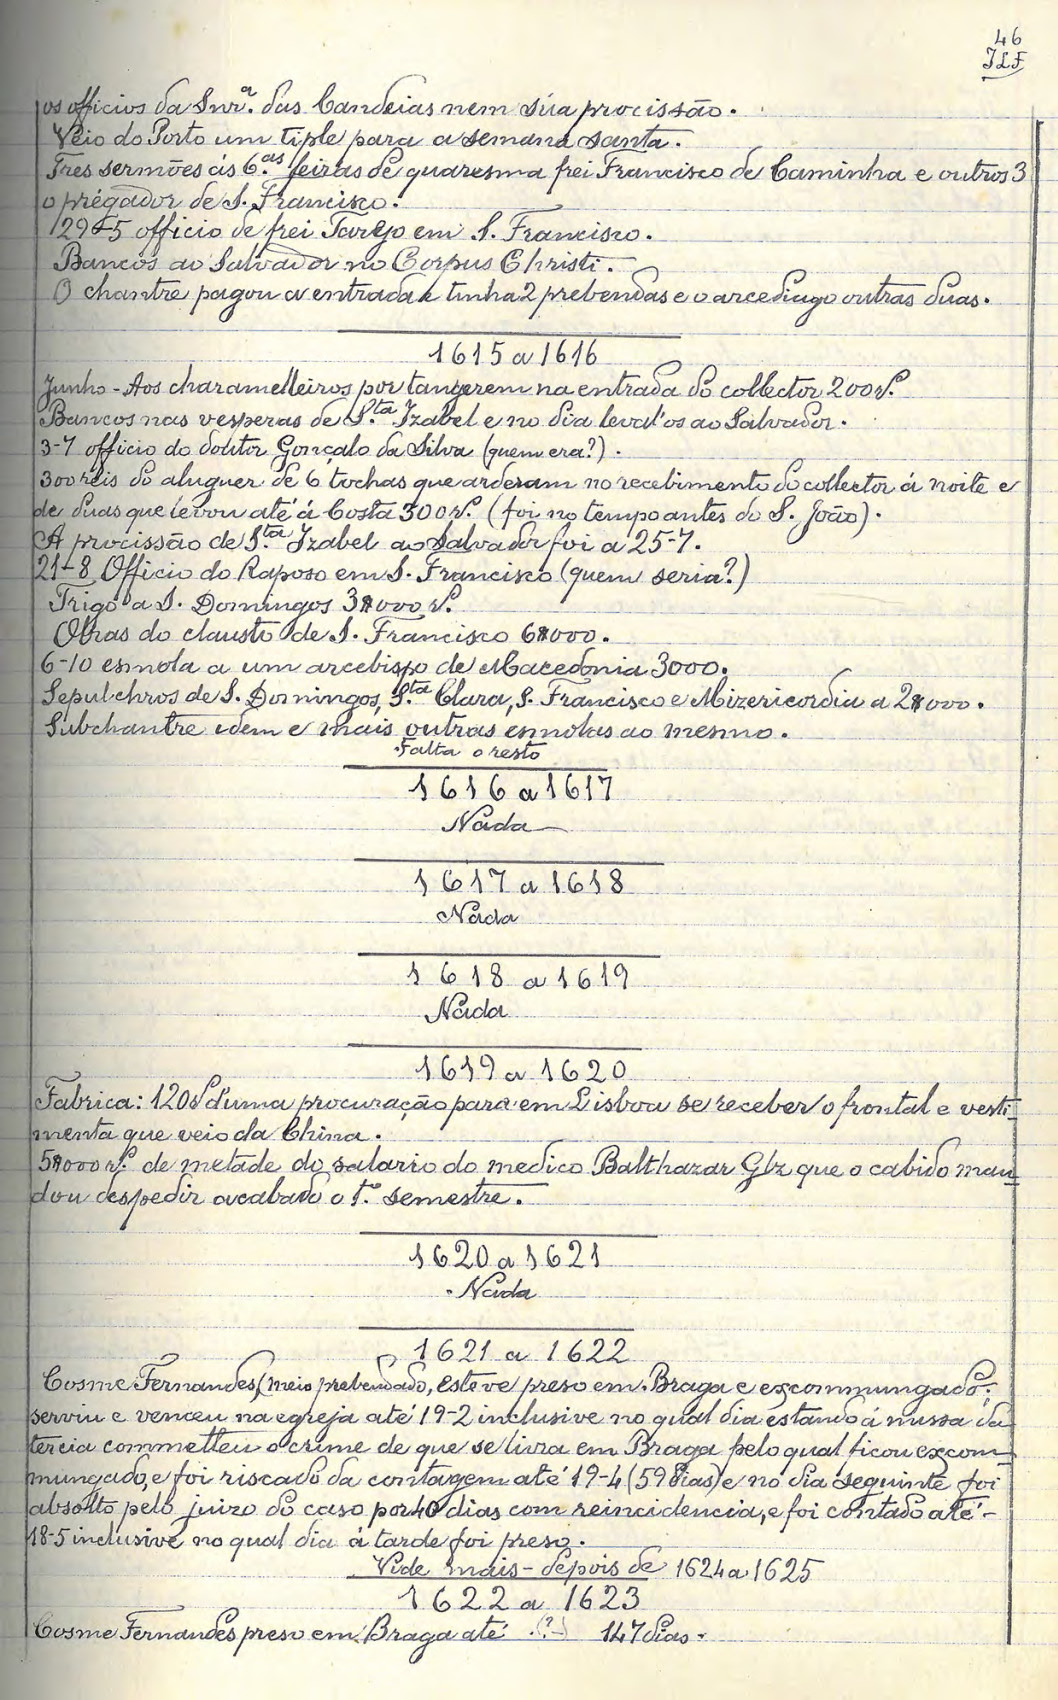 46
JLF
os officios da Snrª. das Candeias nem súa procissão.
Veio do Porto um tiple para a semana santa.
Tres sermões ás 6.as feiras de quaresma frei Francisco de Caminha e outros 3
o prégador de S. Francisco.
29-5 officio de frei em S. Francisco.
Bancos ao Salvador no Corpus Christi.
O chantre pagou a entrada e tinha 2 prebendas e o arcediago outras duas.
1615 a 1616
Junho - Aos charamelleiros por tangerem na entrada do collector 200 rs.
Bancos nas vesperas de S.ta Izabel e no dia leval'os ao Salvador.
3-7 officio do doutor Gonçalo da Silva (quem era?).
300 réis do aluguer de 6 tochas que arderam no recebimento do collector á noite e
de duas que levou até á Costa 300 rs. (foi no tempo antes do S. João).
A procissão de S.ta Izabel ao Salvador foi a 25-7.
21-8 Officio do Raposo em S. Francisco (quem seria?)
Trigo a S. Domingos 3$000 rs.
Obras do claustro de S. Francisco 6$000.
6-10 esmola a um arcebispo de Macedonia 3000.
Sepulchros de S. Domingos, S.ta Clara, S. Francisco e Mizericordia a 2$000.
Subchantre idem e mais outras esmolas ao mesmo.
Falta o resto
1616 a 1617
Nada
1617 a 1618
Nada
1618 a 1619
Nada
1619 a 1620
Fabrica: 120 rs d'uma procuração para em Lisboa se receber o frontal e vesti-
menta que veio da China.
5$000 rs. de metade do salario do medico Balthazar Glz que o cabido man-
dou despedir acabado o 1.º semestre.
1620 a 1621
Nada
1621 a 1622
Cosme Fernandes, (meio prebendado, esteve preso em Braga e excommungado;
serviu e venceu na egreja até 19-2 inclusive no qual dia estando á missa da
tercia commetteu o crime de que se livra em Braga pelo qual ficou excom-
mungado, e foi riscado da contagem até 19-4 (59 dias) e no dia seguinte foi
absolto pelo juizo do caso por 40 dias com reincidencia, e foi contado até -
18-5 inclusive no qual dia á tarde foi preso.
Vide mais - depois de 1624 a 1625
1622 a 1623
Cosme Fernandes preso em Braga até . (?) 147 dias.